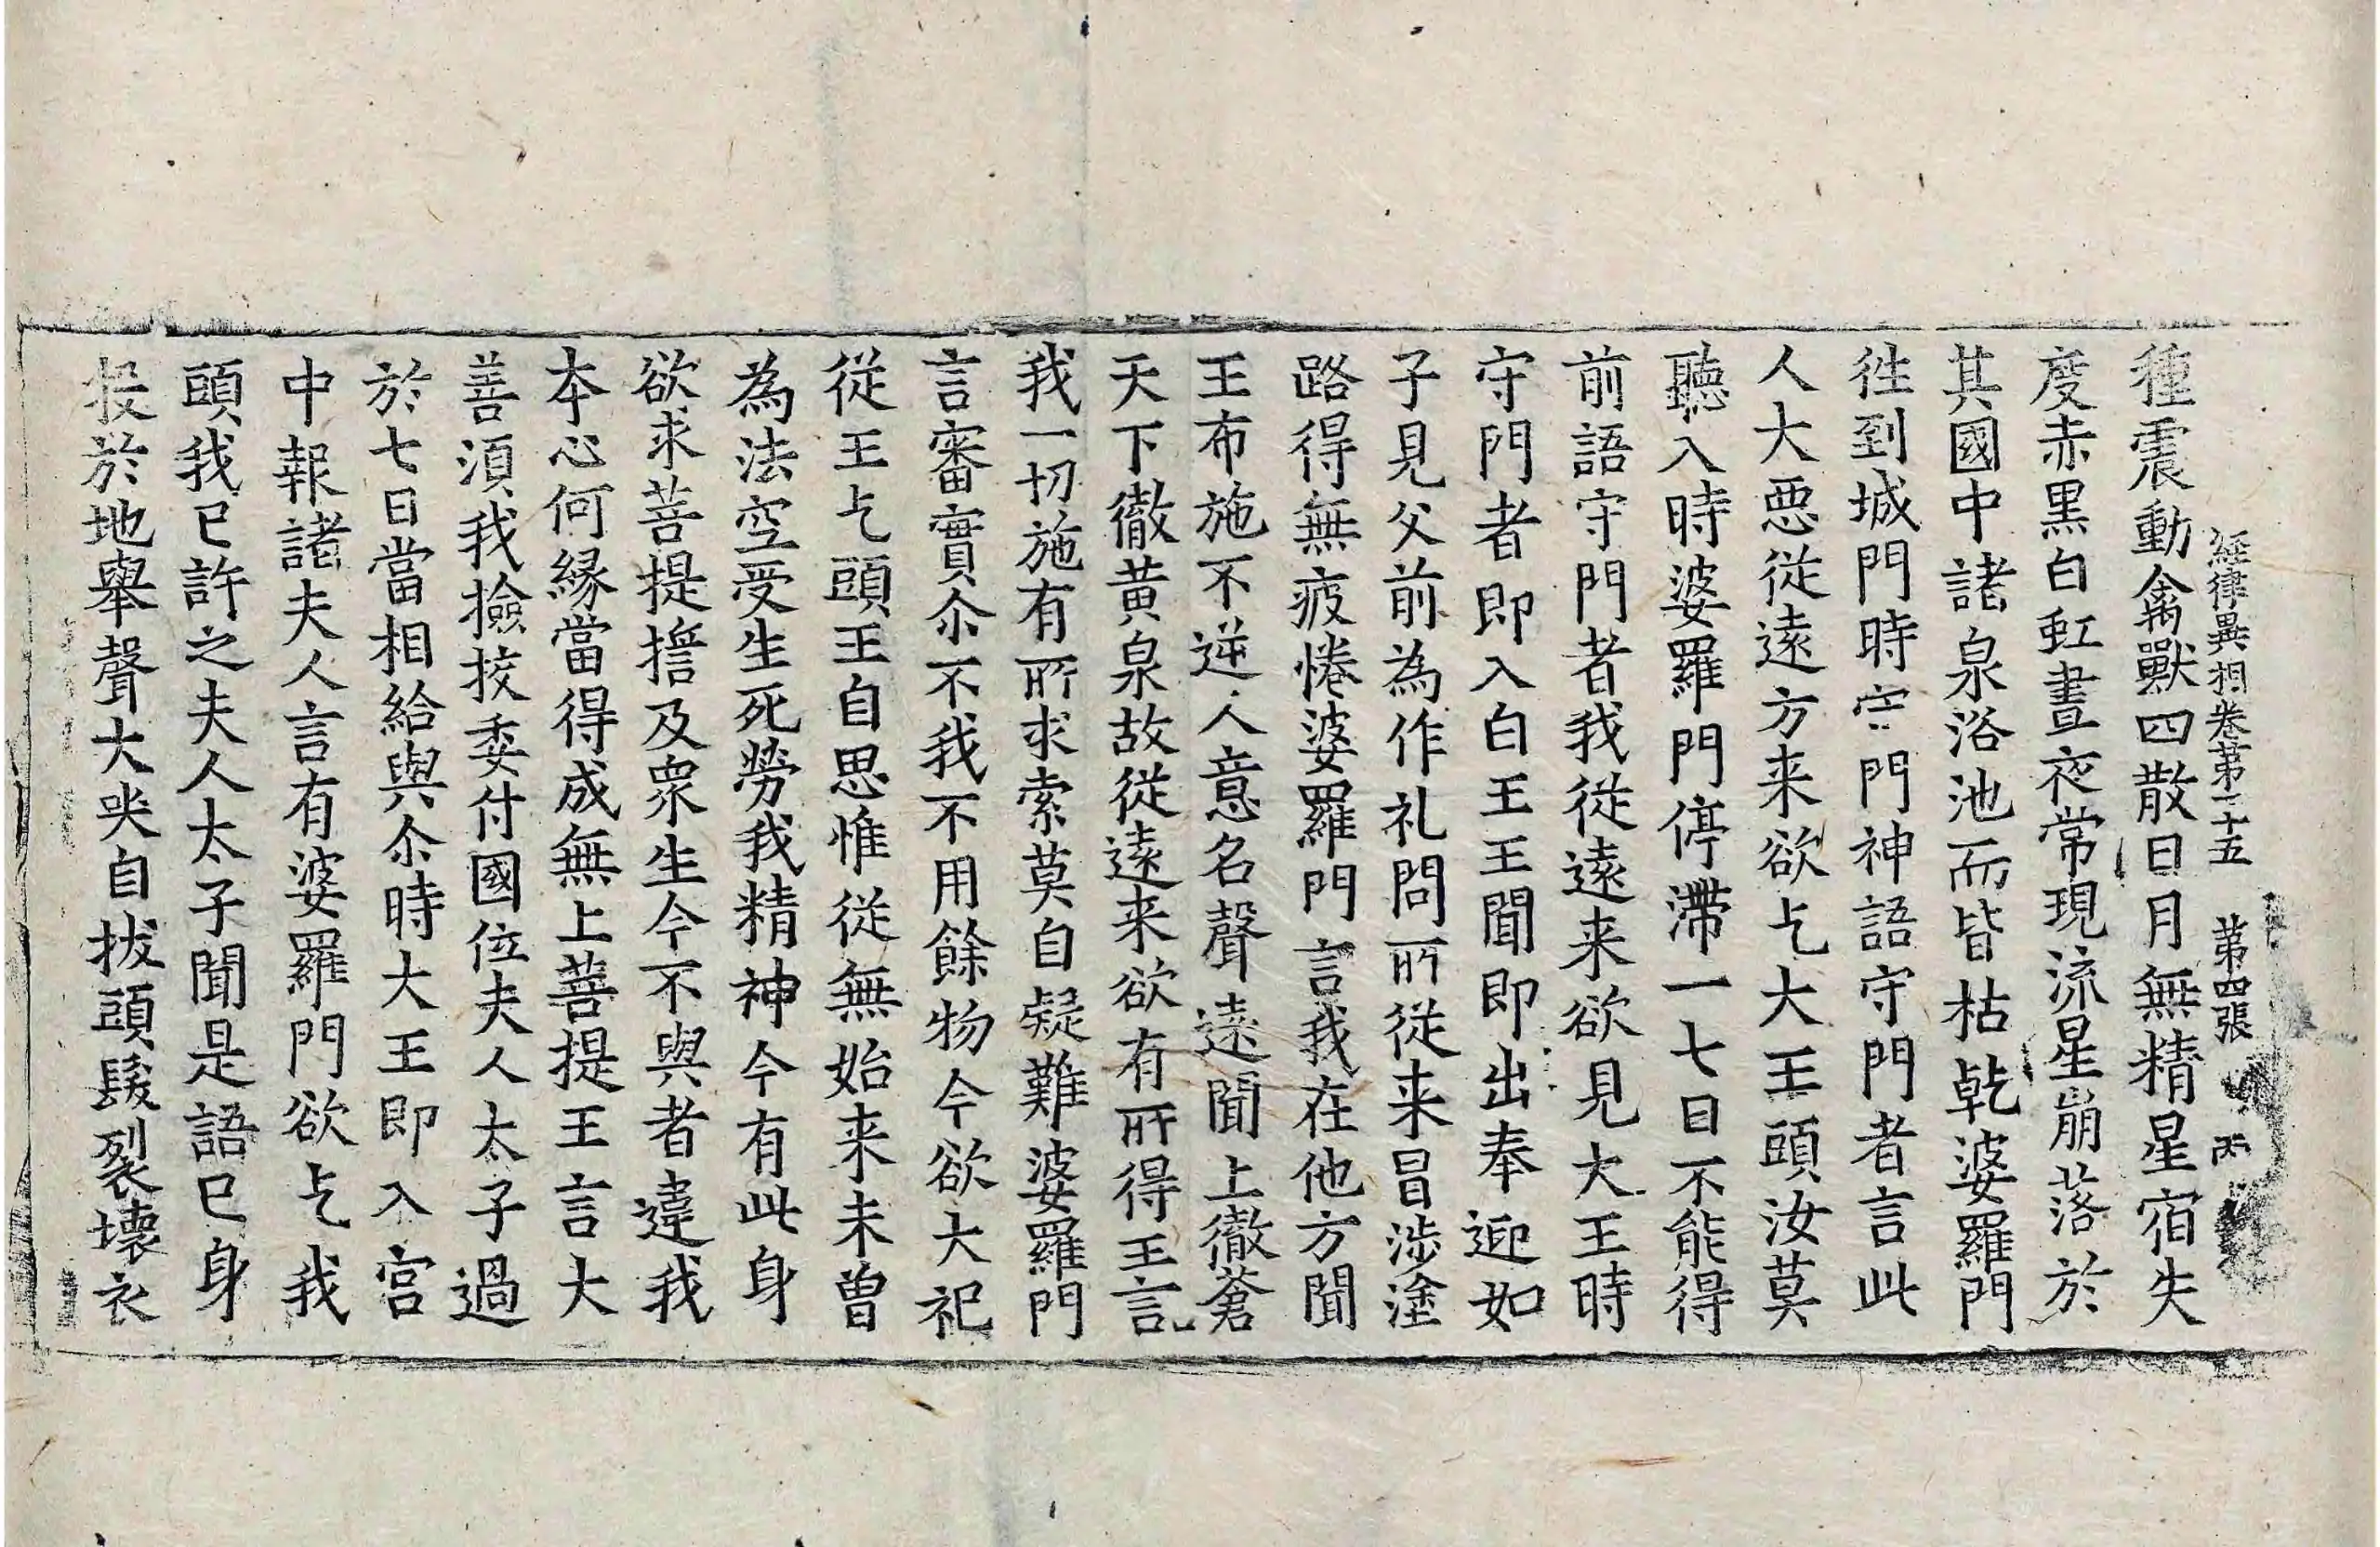 經律異相卷第二十五 第四張 丙
種震動禽獸四散日月無精星宿失
度赤黑白虹晝夜常現流星崩落於
其國中諸泉浴池而皆枯乾婆羅門
徃到城門時守門神語守門者言此
人大惡從遠方来欲乞大王頭汝莫
聽入時婆羅門停滯一七日不能得
前語守門者我從遠来欲見大王時
守門者即入白王王聞即出奉迎如
子見父前為作礼問所從来冒涉塗
路得無疲惓婆羅門言我在他方聞
王布施不逆人意名聲遠聞上徹蒼
天下徹黃泉故從遠来欲有所得王言
我一切施有所求索莫自疑難婆羅門
言審實尒不我不用餘物今欲大祀
從王乞頭王自思惟從無始来未曾
為法空受生死勞我精神今有此身
欲求菩提擔及眾生今不與者違我
本心何緣當得成無上菩提王言大
善湏我撿挍委付國位夫人太子過
於七日當相給與尒時大王即入宮
中報諸夫人言有婆羅門欲乞我
頭我已許之夫人太子聞是語已身
投於地舉聲大哭自拔頭髮裂壞衣